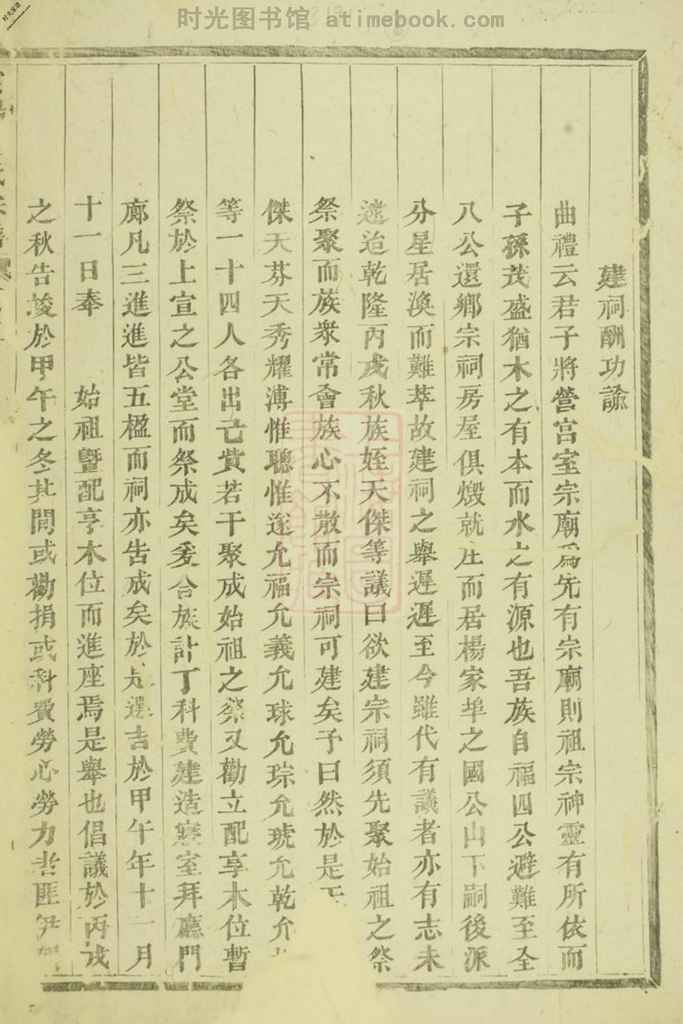 时光图书馆 atimebook.com
建祠酬功諭
曲禮云君子將營宫室宗廟爲先有宗廟則祖宗神靈有所依而
子孫茂盛猶木之有本而水之有源也吾族自福四公避難至全
八公還鄉宗祠房屋俱燬就庄而居楊家埠之國公山下嗣後派
分星居渙而難萃故建祠之舉遲遲至今雖代有議者亦有志未
逮迨乾隆丙戌秋族姪天傑等議曰欲建宗祠須先聚始祖之祭
祭聚而族衆常會族心不散而宗祠可建矣予曰然於是天
傑天芬天秀耀溥惟聰惟遂允福允義允球允琮允琥允乾允
等一十四人各出己貲若干聚成始祖之祭又勸立配享木位暫
祭於上宣之公堂而祭成矣爰合族計丁科費建造寢室拜廳門
廊凡三進進皆五楹而祠亦告成矣於是選吉於甲午年十一月
十一日奉 始祖暨配享木位而進座焉是舉也倡議於丙戌
之秋告竣於甲午之冬其間或勸捐或科費勞心勞力者匪伊